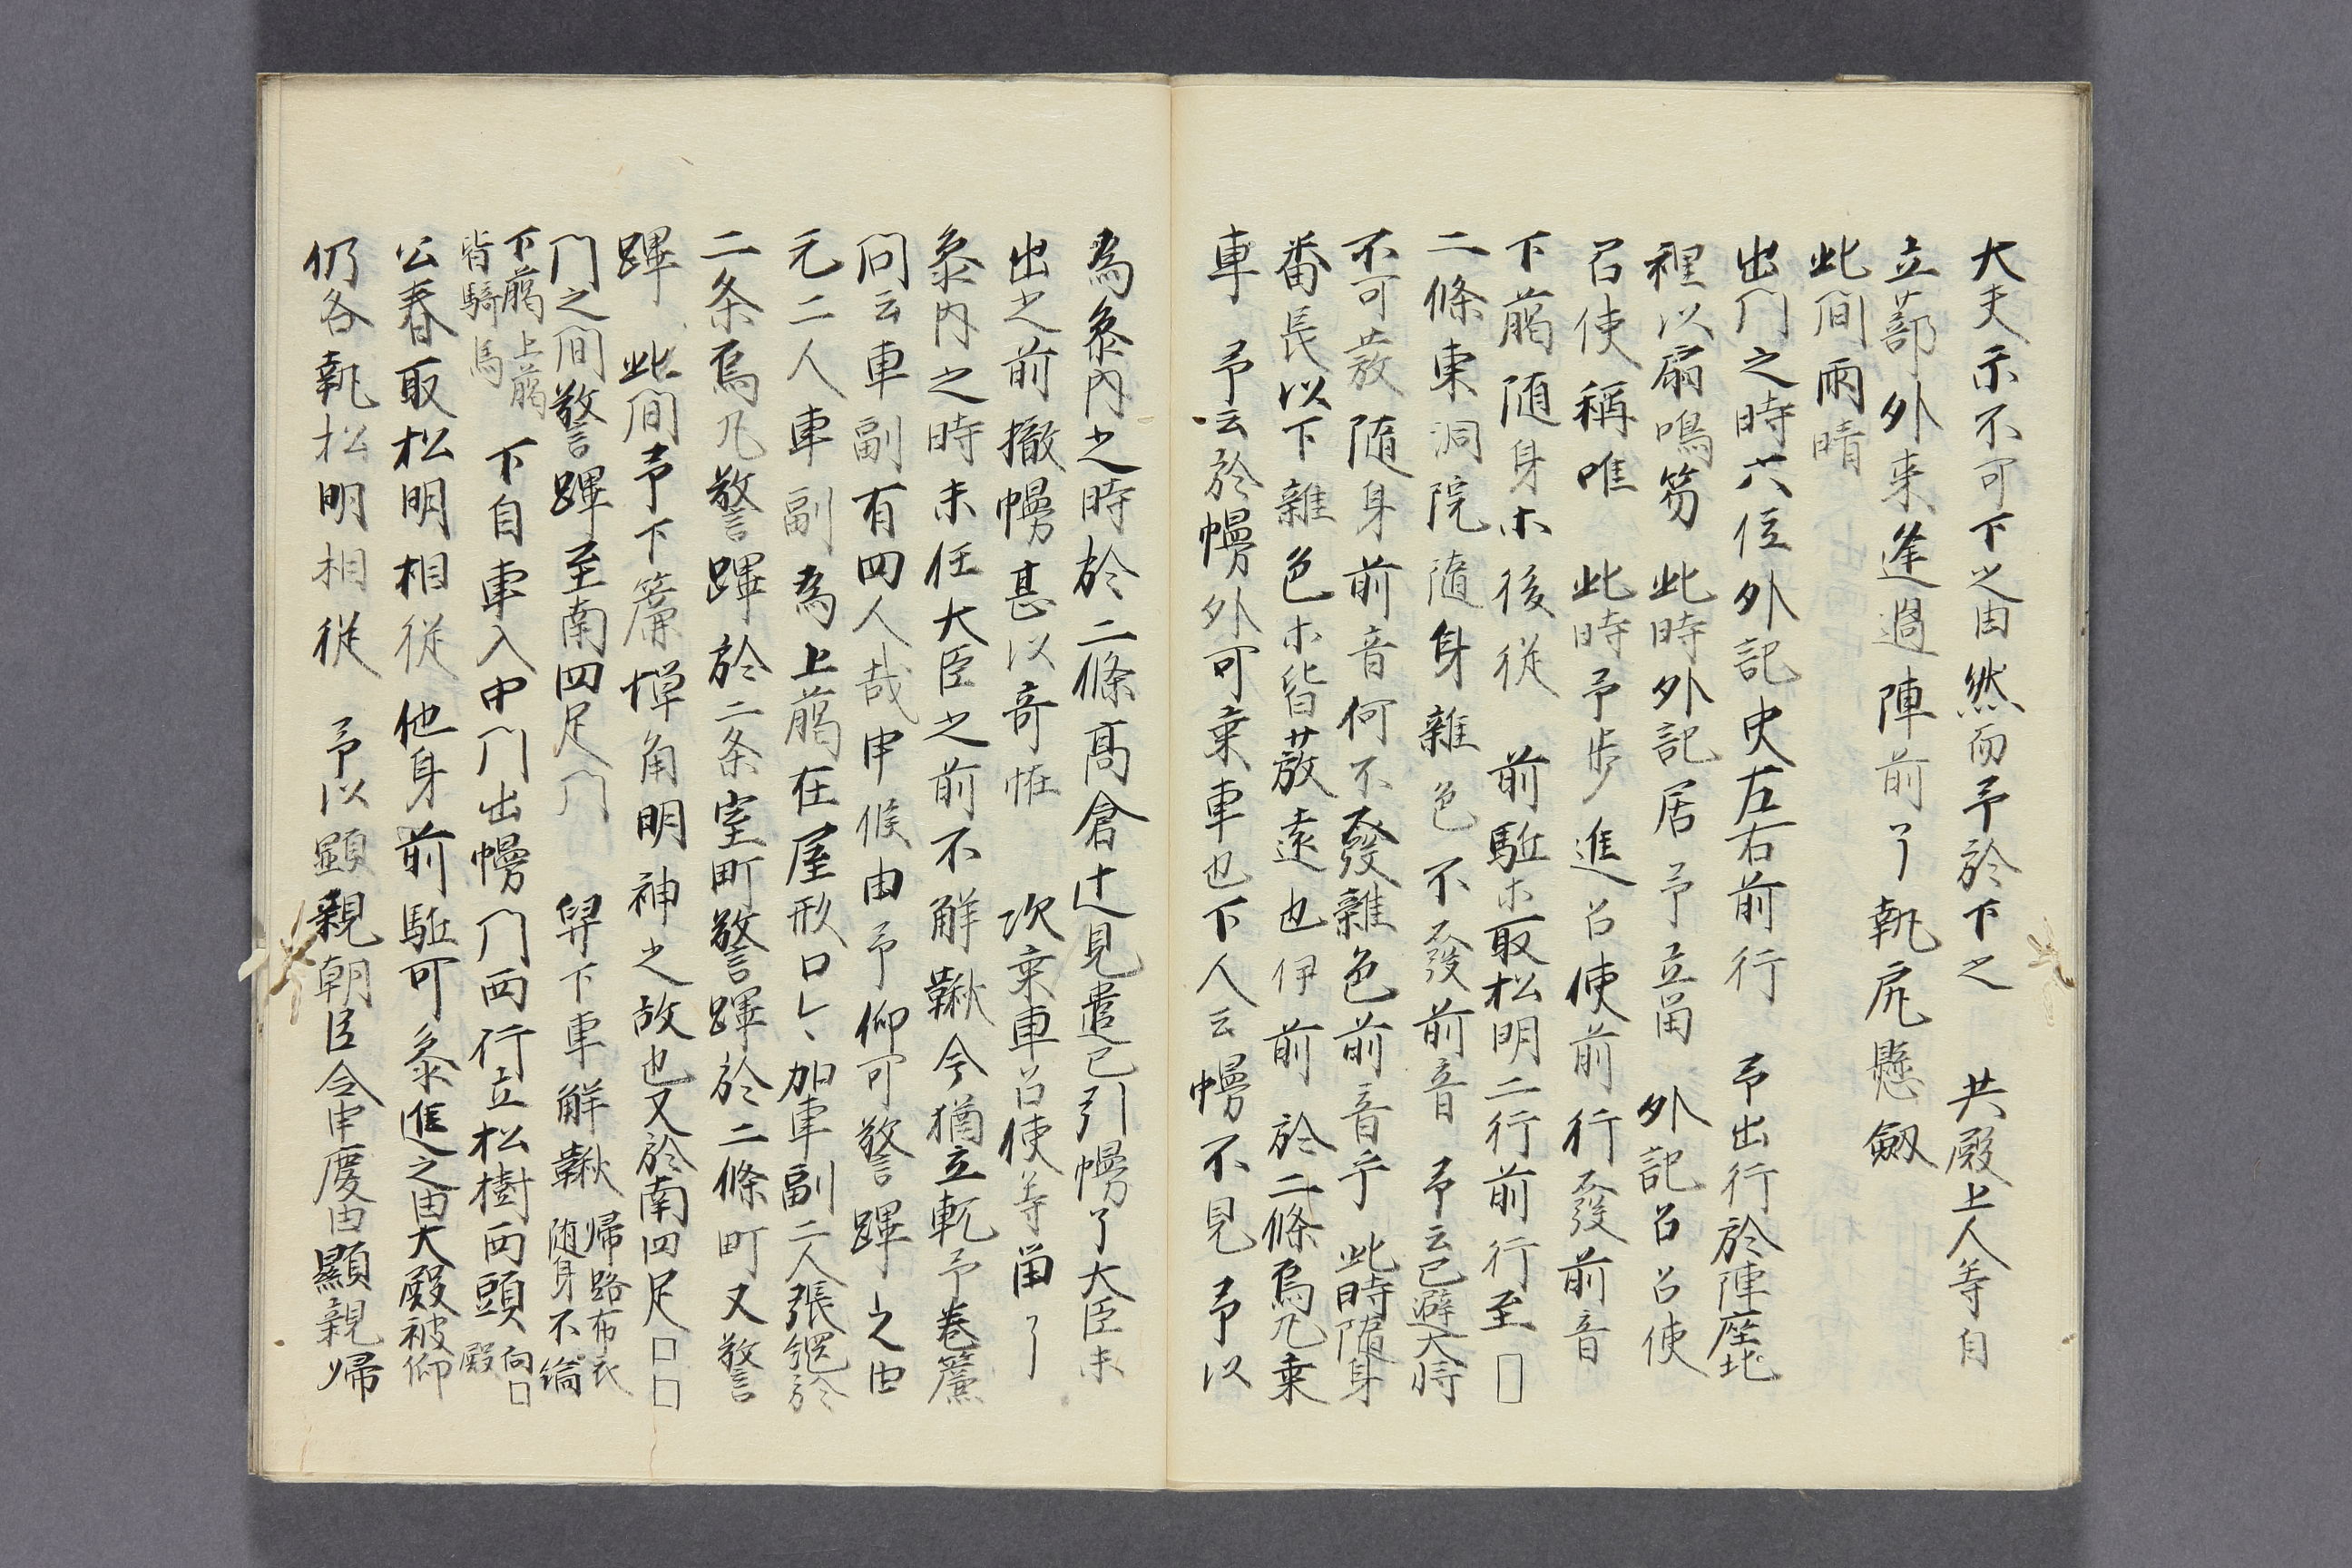 大夫示不可下之由然而予於下之　共殿上人等自
立蔀外来逢過陣前了執尻懸劔
此間雨晴
出門之時六位外記史左右前行　予出行於陣座北
裡以扇鳴笏　此時外記居予立畄　外記召召使
召使稱唯　此時予歩進召使前行發前音
下﨟随身ホ後従　前駈ホ取松明二行前行至□
二條東洞院随身雜色不發前音　予云已避大将
不可放随身前音何不發雜色前音乎　此時随身
番長以下雜色ホ皆放遠也伊前於二條烏丸乗
車　予云於幔外可乗車也下人云幔不見予以
為参内之時於二條高倉辻見遣已引幔了大臣未
出之前撤幔甚以奇恠　次乗車召使等畄了
参内之時未任大臣之前不解鞦今猶立軛予巻簾
问云車副有四人哉申候由予仰可警蹕之由
元二人車副為上﨟在屋形口今加車副二人張綱於
二条烏丸警蹕於二条室町警蹕於二條町又警
蹕　此間予下下簾憚角明神之故也又於南四足□□
门之间警蹕至南四足门　舁下車解鞦帰路布衣
随身不綸
下﨟上﨟
皆騎馬　下自車入中门出幔门両行立松樹両頭向□
殿
公春取松明相従他身前駈可参進之由大殿被仰
仍各執松明相従　予以顕親朝臣令申慶由顯親帰